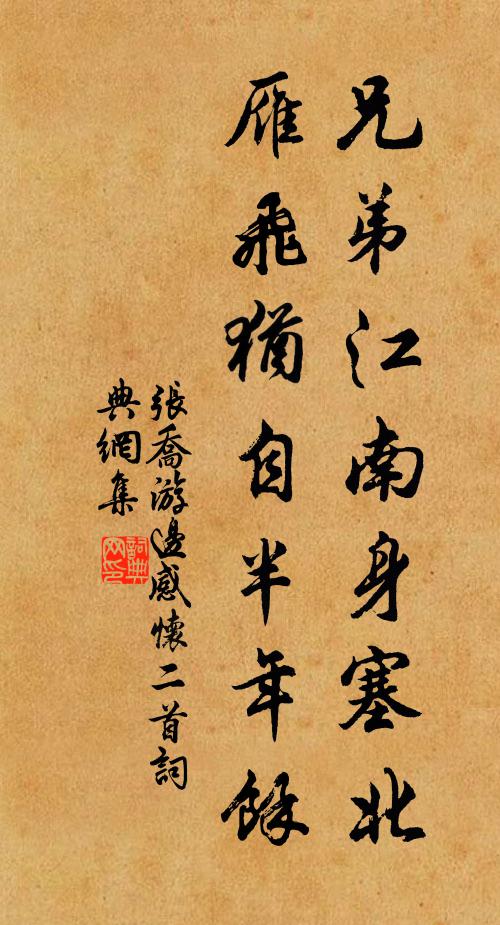 兄弟江南身塞北
雁飛猶自半年餘
張喬游邊感懷二首詞
典網集
詞典
网印